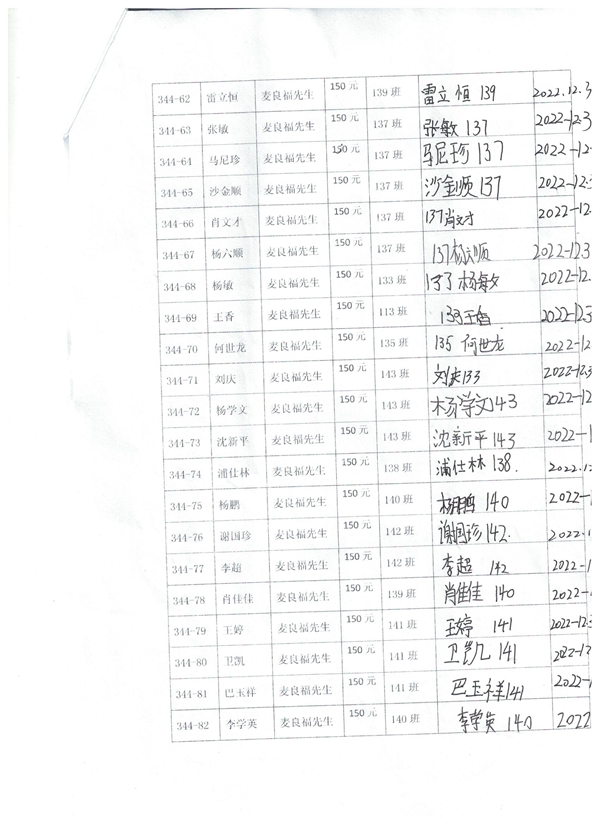 344-62 雷立恒 麦良福先生 150 元 139 班 雷立恒 139 2022.12.3
344-63 张敏 麦良福先生 150 元 137 班 张敏 137 2022-12.3
344-64 马尼珍 麦良福先生 150 元 137 班 马尼珍 137 2022-12-
344-65 沙金顺 麦良福先生 150 元 137 班 沙金顺 137 2022-12-3
344-66 肖文才 麦良福先生 150 元 137 班 137肖文才 2022-12.
344-67 杨六顺 麦良福先生 150 元 137 班 137杨六顺 2022-12.3
344-68 杨敏 麦良福先生 150 元 133 班 133 杨敏 2022-12.
344-69 王香 麦良福先生 150 元 113 班 133王香 2022-12.3
344-70 何世龙 麦良福先生 150 元 135 班 135 何世龙 2022-12
344-71 刘庆 麦良福先生 150 元 143 班 刘庆133 2022-12.3
344-72 杨学文 麦良福先生 150 元 143 班 杨学文143 2022-12
344-73 沈新平 麦良福先生 150 元 143 班 沈新平 143 2022-1
344-74 浦仕林 麦良福先生 150 元 138 班 浦仕林 138. 2022.12
344-75 杨鹏 麦良福先生 150 元 140 班 杨鹏 140 2022-
344-76 谢国珍 麦良福先生 150 元 142 班 谢国珍142. 2022.
344-77 李超 麦良福先生 150 元 142 班 李超 142 2022-1
344-78 肖佳佳 麦良福先生 150 元 139 班 肖佳佳 140 2022-
344-79 王婷 麦良福先生 150 元 141 班 王婷 141 2022-12.3
344-80 卫凯 麦良福先生 150 元 141 班 卫凯 141 2022-12
344-81 巴玉祥 麦良福先生 150 元 141 班 巴玉祥141 2022-1
344-82 李学英 麦良福先生 150 元 140 班 李学英 140 2022